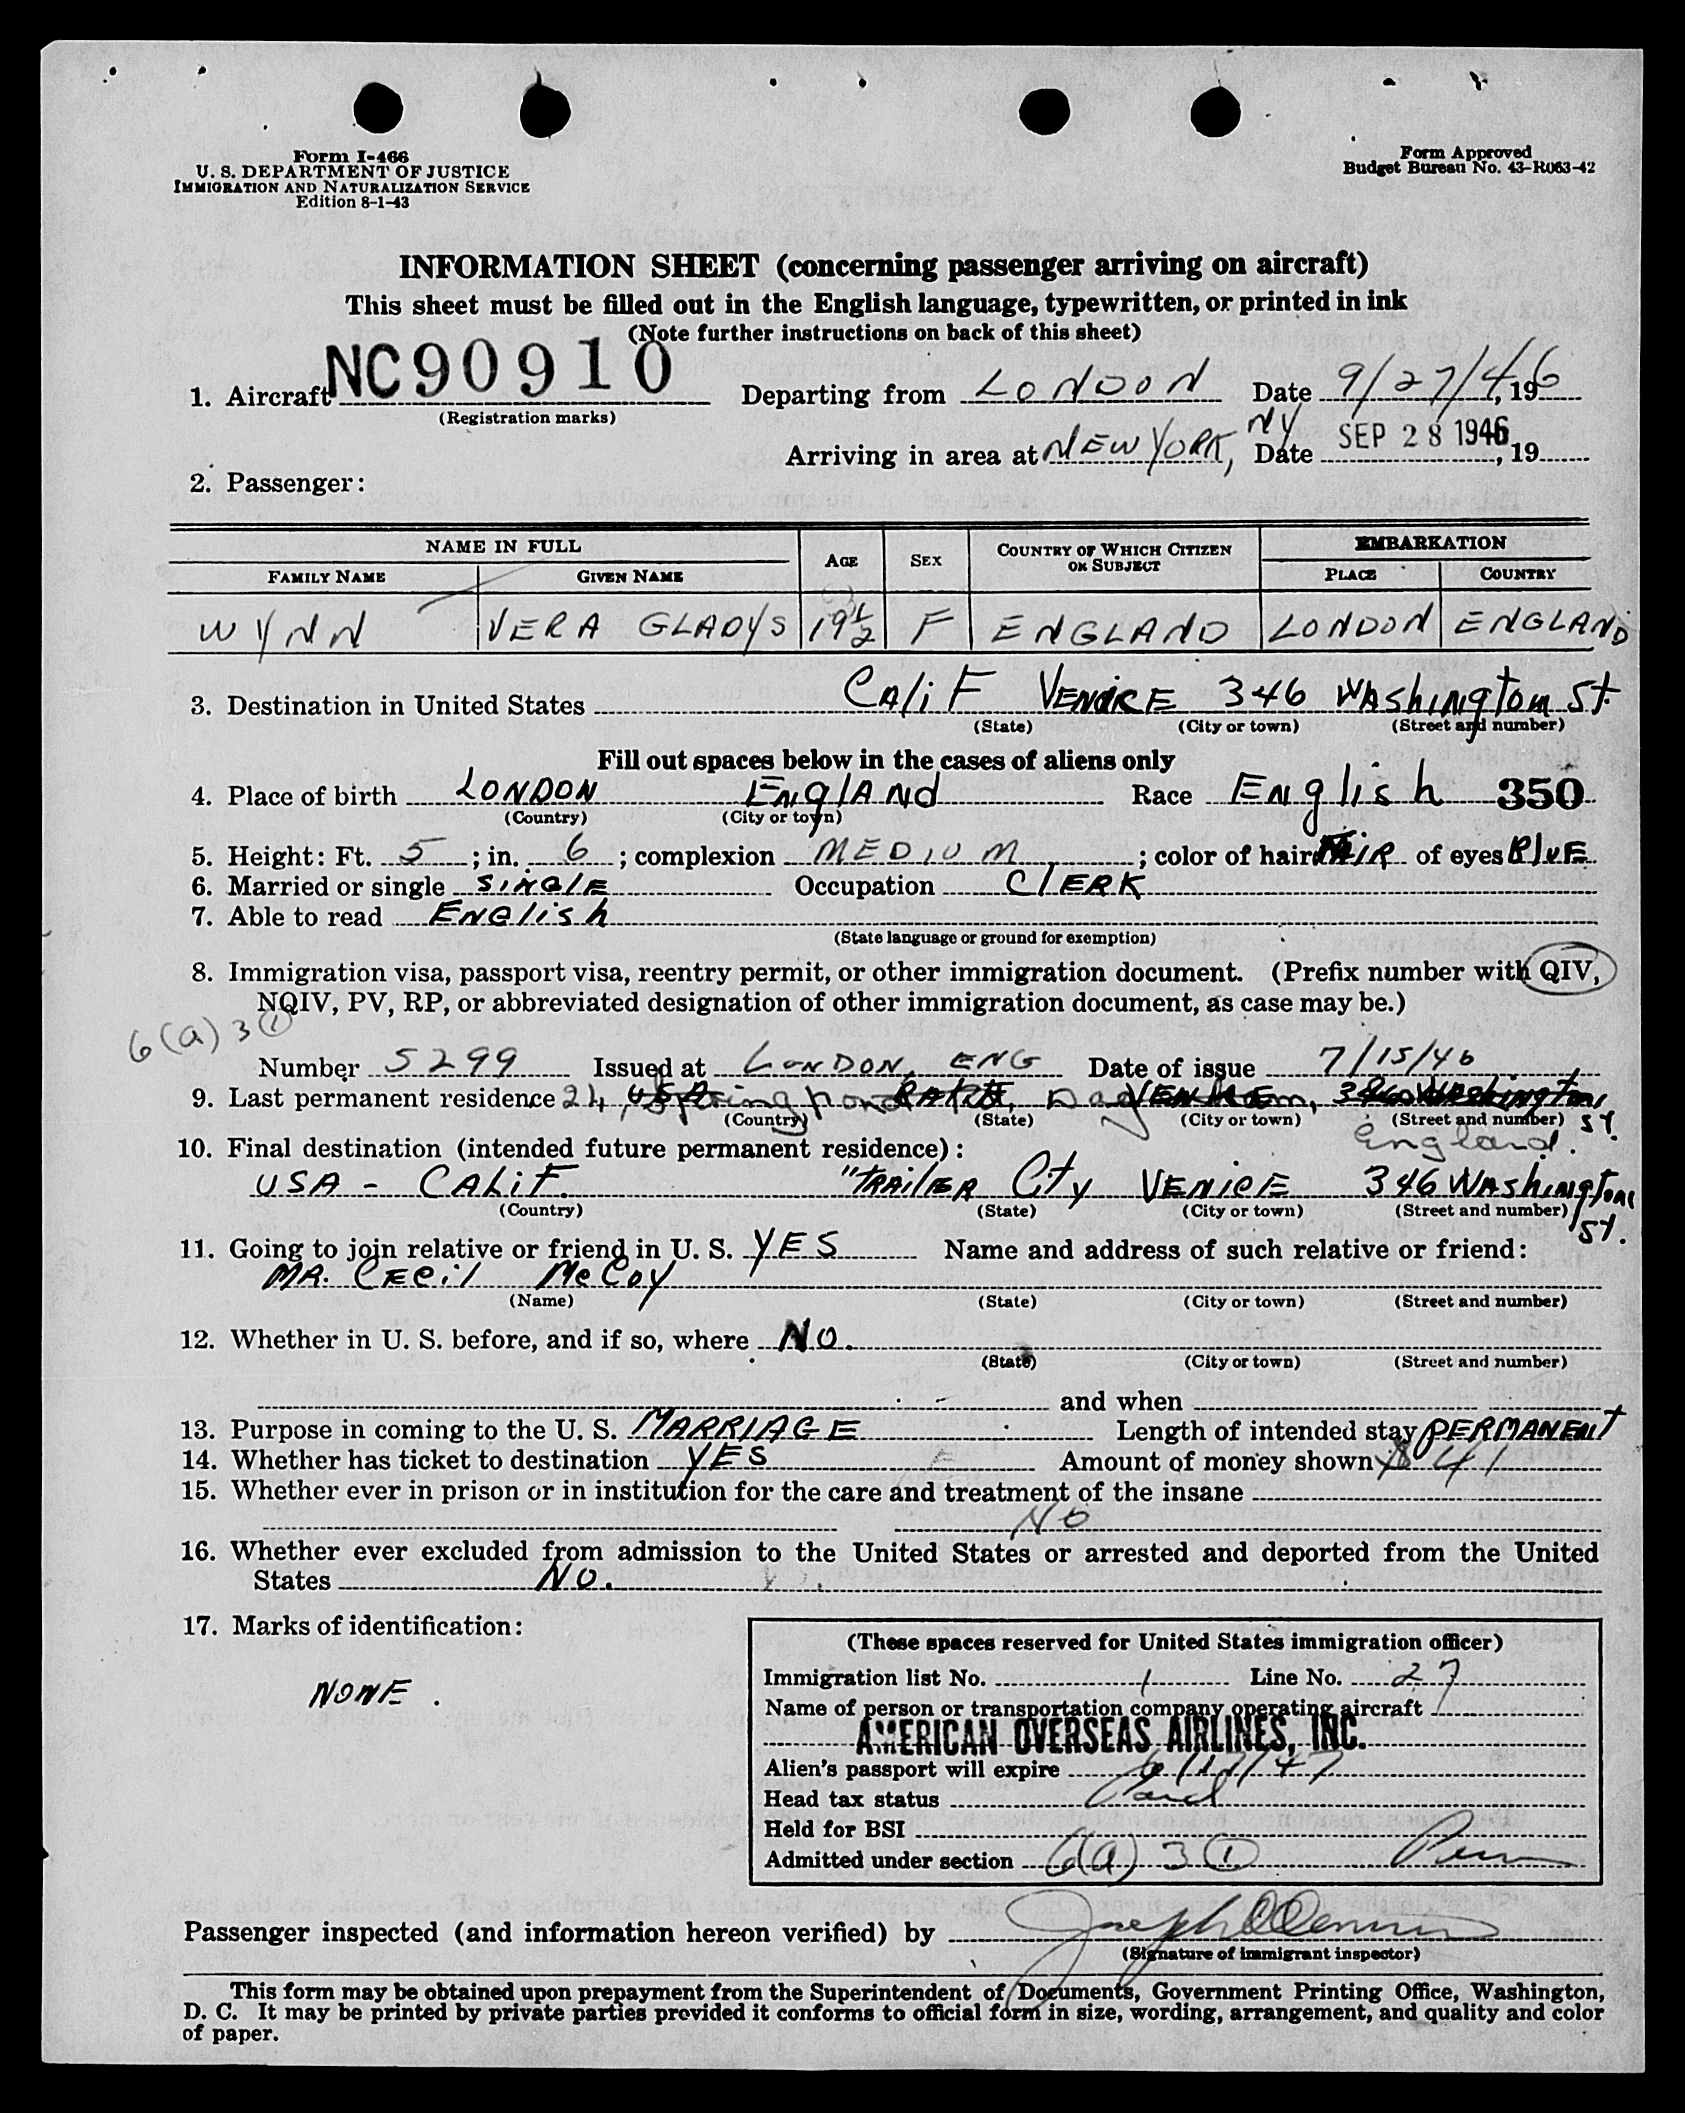 Form I-466
U. S. DEPARTMENT OF JUSTICE
IMMIGRATION AND NATURALIZATION SERVICE
Edition 8-1-43
Form Approved
Budget Bureau No. 43-R063-42
INFORMATION SHEET (concerning passenger arriving on aircraft)
This sheet must be filled out in the English language, typewritten, or printed in ink
(Note further instructions on back of this sheet)
1. Aircraft NC90910 Departing from LONDON Date 9/27/46, 19
(Registration marks)
Arriving in area at NEW YORK, NY Date SEP 28 1946, 19
2. Passenger:
NAME IN FULL AGE SEX COUNTRY OF WHICH CITIZEN OR SUBJECT EMBARKATION
FAMILY NAME GIVEN NAME PLACE COUNTRY
WYNN VERA GLADYS 19 1/2 F ENGLAND LONDON ENGLAND
3. Destination in United States CALIF VENICE 346 WAShINgToN ST.
(State) (City or town) (Street and number)
Fill out spaces below in the cases of aliens only
4. Place of birth LONDON ENglANd Race ENglish 350
(Country) (City or town)
5. Height: Ft. 5; in. 6; complexion MEDIUM; color of hair FAIR of eyes BluE
6. Married or single SINGlE Occupation ClERK
7. Able to read ENGlish
(State language or ground for exemption)
8. Immigration visa, passport visa, reentry permit, or other immigration document. (Prefix number with QIV,
NQIV, PV, RP, or abbreviated designation of other immigration document, as case may be.)
6(a) 3 (1)
Number 5299 Issued at LONDON, ENG Date of issue 7/15/46
9. Last permanent residence 24, USA VENICE, 346 WAShington, ST.
(Country) (State) (City or town) (Street and number)
England.
10. Final destination (intended future permanent residence):
USA - CALIF. "TRAILER City VENICE 346 WAShington ST.
(Country) (State) (City or town) (Street and number)
11. Going to join relative or friend in U. S. YES Name and address of such relative or friend:
MR. CECil McCoy
(Name) (State) (City or town) (Street and number)
12. Whether in U. S. before, and if so, where NO.
(State) (City or town) (Street and number)
and when
13. Purpose in coming to the U. S. MARRIAGE Length of intended stay PERMANENT
14. Whether has ticket to destination YES Amount of money shown $ 41
15. Whether ever in prison or in institution for the care and treatment of the insane
NO
16. Whether ever excluded from admission to the United States or arrested and deported from the United
States NO.
17. Marks of identification:
NONE.
(These spaces reserved for United States immigration officer)
Immigration list No. 1 Line No. 27
Name of person or transportation company operating aircraft
AMERICAN OVERSEAS AIRLINES, INC.
Alien's passport will expire 6/17/47
Head tax status Paid
Held for BSI
Admitted under section 6(a) 3 (1) Perm
Passenger inspected (and information hereon verified) by
(Signature of immigrant inspector)
This form may be obtained upon prepayment from the Superintendent of Documents, Government Printing Office, Washington,
D. C. It may be printed by private parties provided it conforms to official form in size, wording, arrangement, and quality and color
of paper.